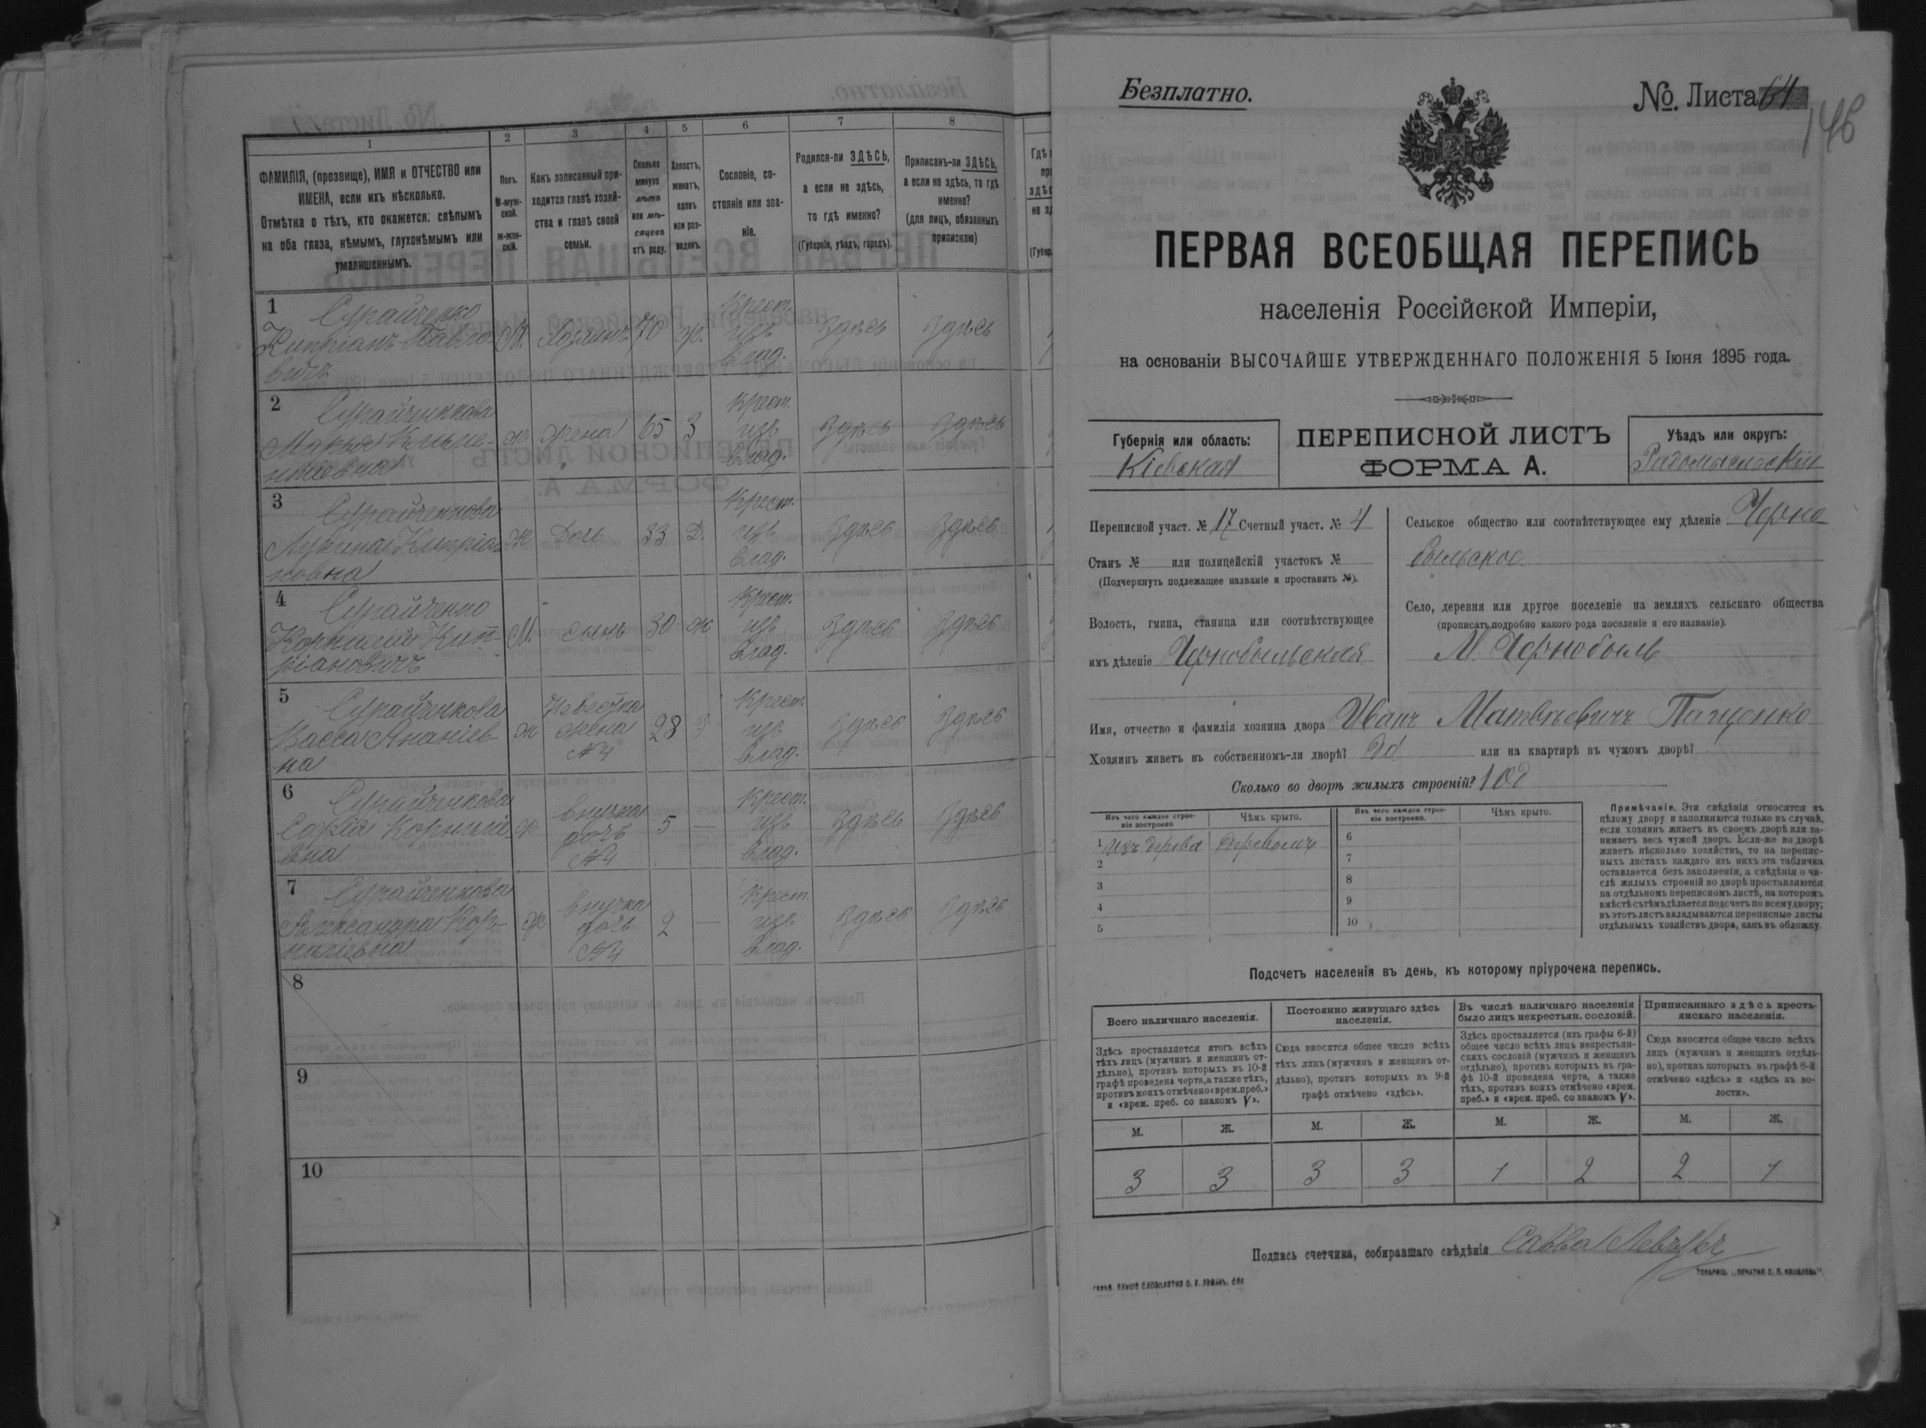 1
2
3
4
5
6
7
8
ФАМИЛІЯ, (прозвище), ИМЯ и ОТЧЕСТВО или
ИМЕНА, если ихъ нѣсколько.
Отмѣтка о тѣхъ, кто окажется: слѣпымъ
на оба глаза, нѣмымъ, глухонѣмымъ или
умалишеннымъ.
Полъ.
М-муж-
ской.
ж-жен-
скій.
Какъ записанный при-
ходится главѣ хозяй-
ства и главѣ своей
семьи.
Сколько
минуло
лѣтъ
или мѣ-
сяцевъ
отъ роду.
Холостъ,
женатъ,
вдовъ
или раз-
веденъ.
Сословіе, со-
стояніе или зва-
ніе.
Родился-ли ЗДѢСЬ,
а если не здѣсь,
то гдѣ именно?
(Губернія, уѣздъ, городъ).
Приписанъ-ли ЗДѢСЬ,
а если не здѣсь, то гдѣ
именно?
(для лицъ, обязанныхъ
припискою)
1
Кипріанъ Павло-
вичъ
М. Хозяинъ 70 ж. Крест. изъ влад. Здѣсь Здѣсь
2
ж жена 65 З Крест. изъ влад. Здѣсь Здѣсь
3
Кипріа-
новна
ж Дочь 33 Д. Крест. изъ влад. Здѣсь Здѣсь
4
Корнилій Кип-
ріановичъ
М. сынъ 30 ж Крест. изъ влад. Здѣсь Здѣсь
5
Васса Ананіев-
на
ж Невѣстка жена №4 28 З Крест. изъ влад. Здѣсь Здѣсь
6
Софія Корниліе
вна
ж внучка дочь №4 5 — Крест. изъ влад. Здѣсь Здѣсь
7
Александра Кор-
ниліевна
ж внучка дочь №4 2 — Крест. изъ влад. Здѣсь Здѣсь
8
9
10
Безплатно.
№. Листа 64
146
ПЕРВАЯ ВСЕОБЩАЯ ПЕРЕПИСЬ
населенія Россійской Имперіи,
на основаніи ВЫСОЧАЙШЕ УТВЕРЖДЕННАГО ПОЛОЖЕНІЯ 5 Іюня 1895 года.
Губернія или область:
Кіевская
ПЕРЕПИСНОЙ ЛИСТЪ
ФОРМА А.
Уѣздъ или округъ:
Радомысльскій
Переписной участ. № 17 Счетный участ. № 4
Станъ № или полицейскій участокъ №
(Подчеркнуть подлежащее названіе и проставить №).
Волость, гмина, станица или соотвѣтствующее
имъ дѣленіе Чернобыльская
Сельское общество или соотвѣтствующее ему дѣленіе Черно
быльское
Село, деревня или другое поселеніе на земляхъ сельскаго общества
(прописать подробно какого рода поселеніе и его названіе).
М. Чернобыль
Имя, отчество и фамилія хозяина двора Иванъ Матвѣевичъ Пащенко
Хозяинъ живетъ въ собственномъ-ли дворѣ? Да или на квартирѣ въ чужомъ дворѣ?
Сколько во дворѣ жилыхъ строеній?
Изъ чего каждое строе-
ніе построено.
Чѣмъ крыто.
Изъ чего каждое строе-
ніе построено.
Чѣмъ крыто.
1 Изъ дерева Деревомъ
2
3
4
5
6
7
8
9
10
Примѣчаніе. Эти свѣдѣнія относятся къ
цѣлому двору и заполняются только въ случаѣ,
если хозяинъ живетъ въ своемъ дворѣ или за-
нимаетъ весь чужой дворъ. Если-же во дворѣ
живетъ нѣсколько хозяйствъ, то на перепис-
ныхъ листахъ каждаго изъ нихъ эта табличка
оставляется безъ заполненія, а свѣдѣнія о чи-
слѣ жилыхъ строеній во дворѣ проставляются
на отдѣльномъ переписномъ листѣ, на которомъ
вмѣстѣ съ тѣмъ дѣлается подсчетъ по всему двору;
въ этотъ листъ вкладываются переписные листы
отдѣльныхъ хозяйствъ двора, какъ въ обложку.
Подсчетъ населенія въ день, къ которому пріурочена перепись.
Всего наличнаго населенія.
Постоянно живущаго здѣсь
населенія.
Въ числѣ наличнаго населенія
было лицъ некрестьян. сословій.
Приписаннаго здѣсь кресть-
янскаго населенія.
Здѣсь проставляется итогъ всѣхъ
тѣхъ лицъ (мужчинъ и женщинъ от-
дѣльно), противъ которыхъ въ 10-й
графѣ проведена черта, а также тѣхъ,
противъ коихъ отмѣчено «врем. преб.»
и «врем. преб. со знакомъ V».
Сюда вносится общее число всѣхъ
тѣхъ лицъ (мужчинъ и женщинъ от-
дѣльно), противъ которыхъ въ 9-й
графѣ отмѣчено «здѣсь».
Здѣсь проставляется (изъ графы 6-й)
общее число всѣхъ лицъ некрестьян-
скихъ сословій (мужчинъ и женщинъ
отдѣльно), противъ которыхъ въ гра-
фѣ 10-й проведена черта, а также
тѣхъ, противъ коихъ отмѣчено «врем.
преб.» и «врем. преб. со знакомъ V».
Сюда вносится общее число всѣхъ
лицъ (мужчинъ и женщинъ отдѣль-
но), противъ которыхъ въ графѣ 8-й
отмѣчено «здѣсь» и «здѣсь къ во-
лости».
М. Ж. М. Ж. М. Ж. М. Ж.
3 3 3 3 1 2 2 1
Подпись счетчика, собиравшаго свѣдѣнія Савва